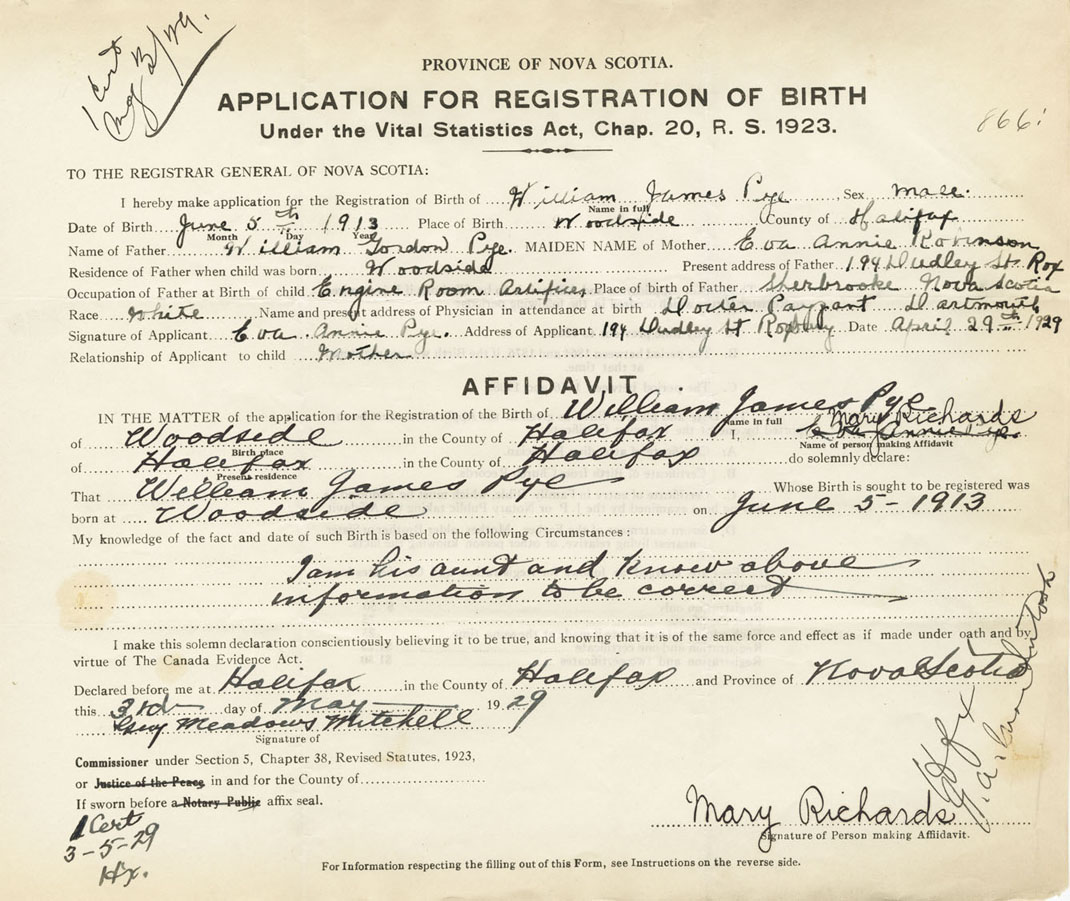 1 Cert
May 3/29.
PROVINCE OF NOVA SCOTIA.
APPLICATION FOR REGISTRATION OF BIRTH
Under the Vital Statistics Act, Chap. 20, R. S. 1923.
866
TO THE REGISTRAR GENERAL OF NOVA SCOTIA:
I hereby make application for the Registration of Birth of William James Pye Sex male.
Name in full
Date of Birth June 5th 1913 Place of Birth Woodside County of Halifax
Month Day Year
Name of Father William Gordon Pye. MAIDEN NAME of Mother Eva Annie Robinson
Residence of Father when child was born Woodside Present address of Father 194 Dudley St. Rox
Occupation of Father at Birth of child Engine Room Artificer Place of birth of Father Sherbrooke Nova Scotia
Race White Name and present address of Physician in attendance at birth Docter Payzant Dartmouth
Signature of Applicant Eva Annie Pye. Address of Applicant 194 Dudley St Roxbury Date April 29th 1929
Relationship of Applicant to child Mother
AFFIDAVIT.
IN THE MATTER of the application for the Registration of the Birth of William James Pye
Name in full
of Woodside in the County of Halifax I, Mary Richards
Birth place Name of person making Affidavit
of Halifax in the County of Halifax do solemnly declare:
Present residence
That William James Pye Whose Birth is sought to be registered was
born at Woodside on June 5 - 1913
My knowledge of the fact and date of such Birth is based on the following Circumstances:
I am his aunt and know above
information to be correct
I make this solemn declaration conscientiously believing it to be true, and knowing that it is of the same force and effect as if made under oath and by
virtue of The Canada Evidence Act.
Declared before me at Halifax in the County of Halifax and Province of Nova Scotia
this 3rd day of May 1929
Guy Meadows Mitchell
Signature of
Commissioner under Section 5, Chapter 38, Revised Statutes, 1923,
or Justice of the Peace in and for the County of
If sworn before a Notary Public affix seal.
1 Cert
3-5-29
Hx.
Mary Richards
Signature of Person making Affidavit.
For Information respecting the filling out of this Form, see Instructions on the reverse side.